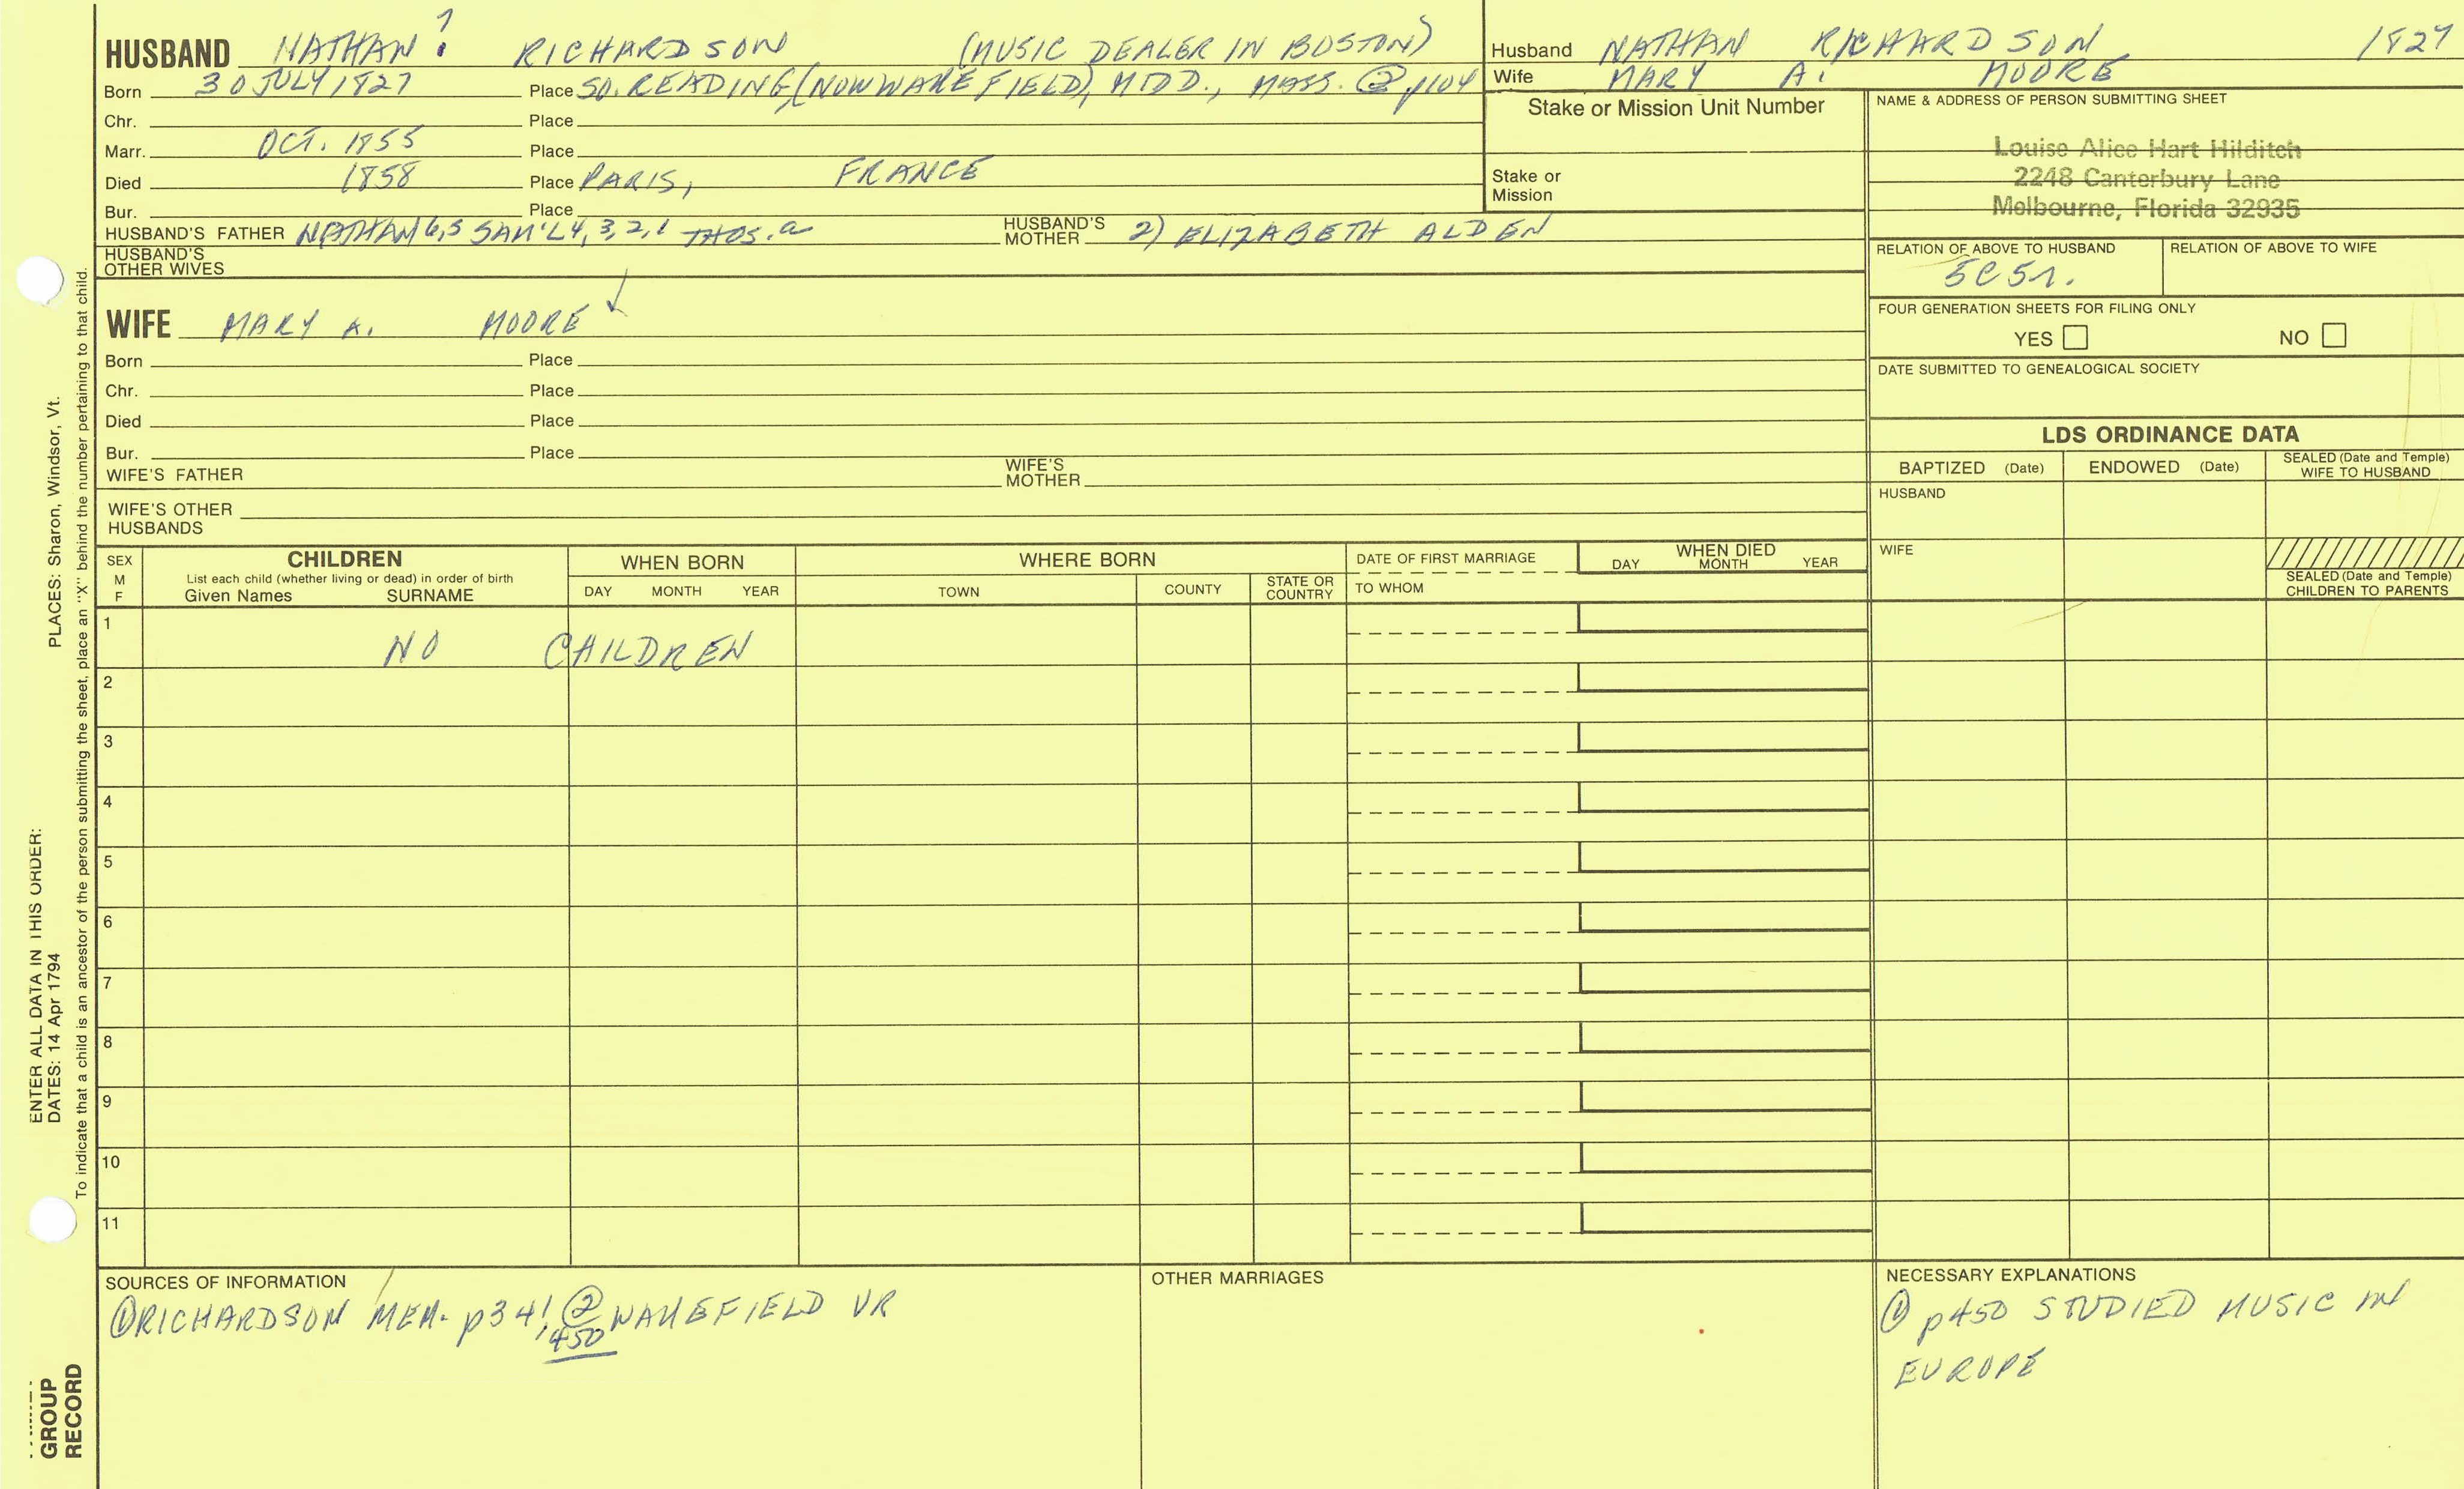 HUSBAND NATHAN 7 RICHARDSON (MUSIC DEALER IN BOSTON)
Born 30 JULY 1827 Place SO. READING, (NOW WAKEFIELD), MIDD., MASS. ② p104
Chr. Place
Marr. OCT. 1855 Place
Died 1858 Place PARIS, FRANCE
Bur. Place
HUSBAND'S FATHER NATHAN 6,5 SAM'L 4,3,2,1 THOS. a HUSBAND'S MOTHER 2) ELIZABETH ALDEN
HUSBAND'S OTHER WIVES
WIFE MARY A. MOORE
Born Place
Chr. Place
Died Place
Bur. Place
WIFE'S FATHER WIFE'S MOTHER
WIFE'S OTHER HUSBANDS
Husband NATHAN RICHARDSON 1827
Wife MARY A. MOORE
Stake or Mission Unit Number
Stake or Mission
NAME & ADDRESS OF PERSON SUBMITTING SHEET
Louise Alice Hart Hilditch
2248 Canterbury Lane
Melbourne, Florida 32935
RELATION OF ABOVE TO HUSBAND RELATION OF ABOVE TO WIFE
5C5r.
FOUR GENERATION SHEETS FOR FILING ONLY
YES NO
DATE SUBMITTED TO GENEALOGICAL SOCIETY
LDS ORDINANCE DATA
BAPTIZED (Date) ENDOWED (Date) SEALED (Date and Temple) WIFE TO HUSBAND
HUSBAND
WIFE
SEALED (Date and Temple) CHILDREN TO PARENTS
SEX M F
CHILDREN
List each child (whether living or dead) in order of birth
Given Names SURNAME
WHEN BORN
DAY MONTH YEAR
WHERE BORN
TOWN COUNTY STATE OR COUNTRY
DATE OF FIRST MARRIAGE
TO WHOM
WHEN DIED
DAY MONTH YEAR
1 NO CHILDREN
2
3
4
5
6
7
8
9
10
11
SOURCES OF INFORMATION
① RICHARDSON MEM. p341, 450 ② WAKEFIELD VR
OTHER MARRIAGES
NECESSARY EXPLANATIONS
① p450 STUDIED MUSIC IN
EUROPE
ENTER ALL DATA IN THIS ORDER:
DATES: 14 Apr 1794 PLACES: Sharon, Windsor, Vt.
To indicate that a child is an ancestor of the person submitting the sheet, place an "X" behind the number pertaining to that child.
GROUP
RECORD